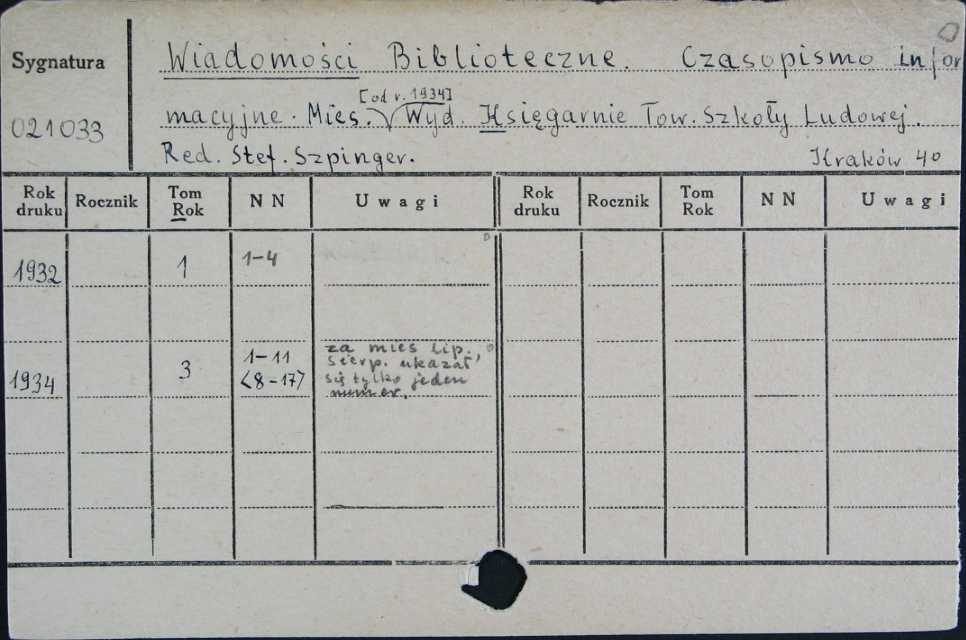 Sygnatura
021033
Wiadomości Biblioteczne. Czasopismo infor
[od r. 1934]
macyjne. Mies. Wyd. Księgarnie Tow. Szkoły Ludowej.
Red. Stef. Szpinger. Kraków 4o
Rok druku Rocznik Tom Rok NN Uwagi Rok druku Rocznik Tom Rok NN Uwagi
1932 1 1-4
1934 3 1-11
<8-17> za mies lip.,
sierp. ukazał
się tylko jeden
numer.